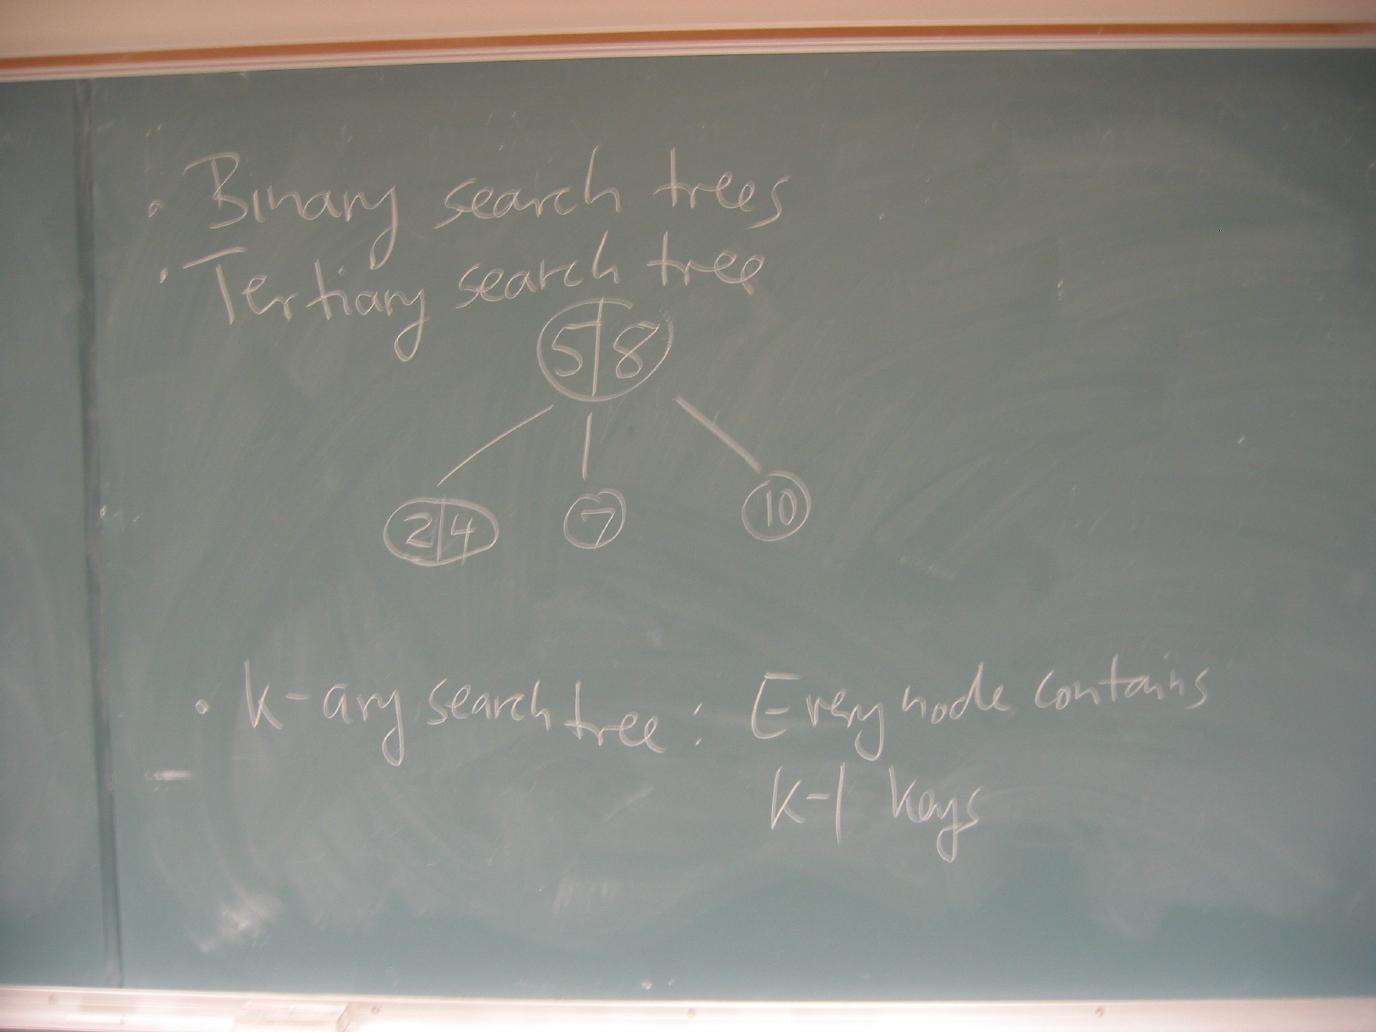 · Binary search trees
· Tertiary search tree
5|8
2|4 7 10
· k-ary search tree : Every node contains
k-1 keys